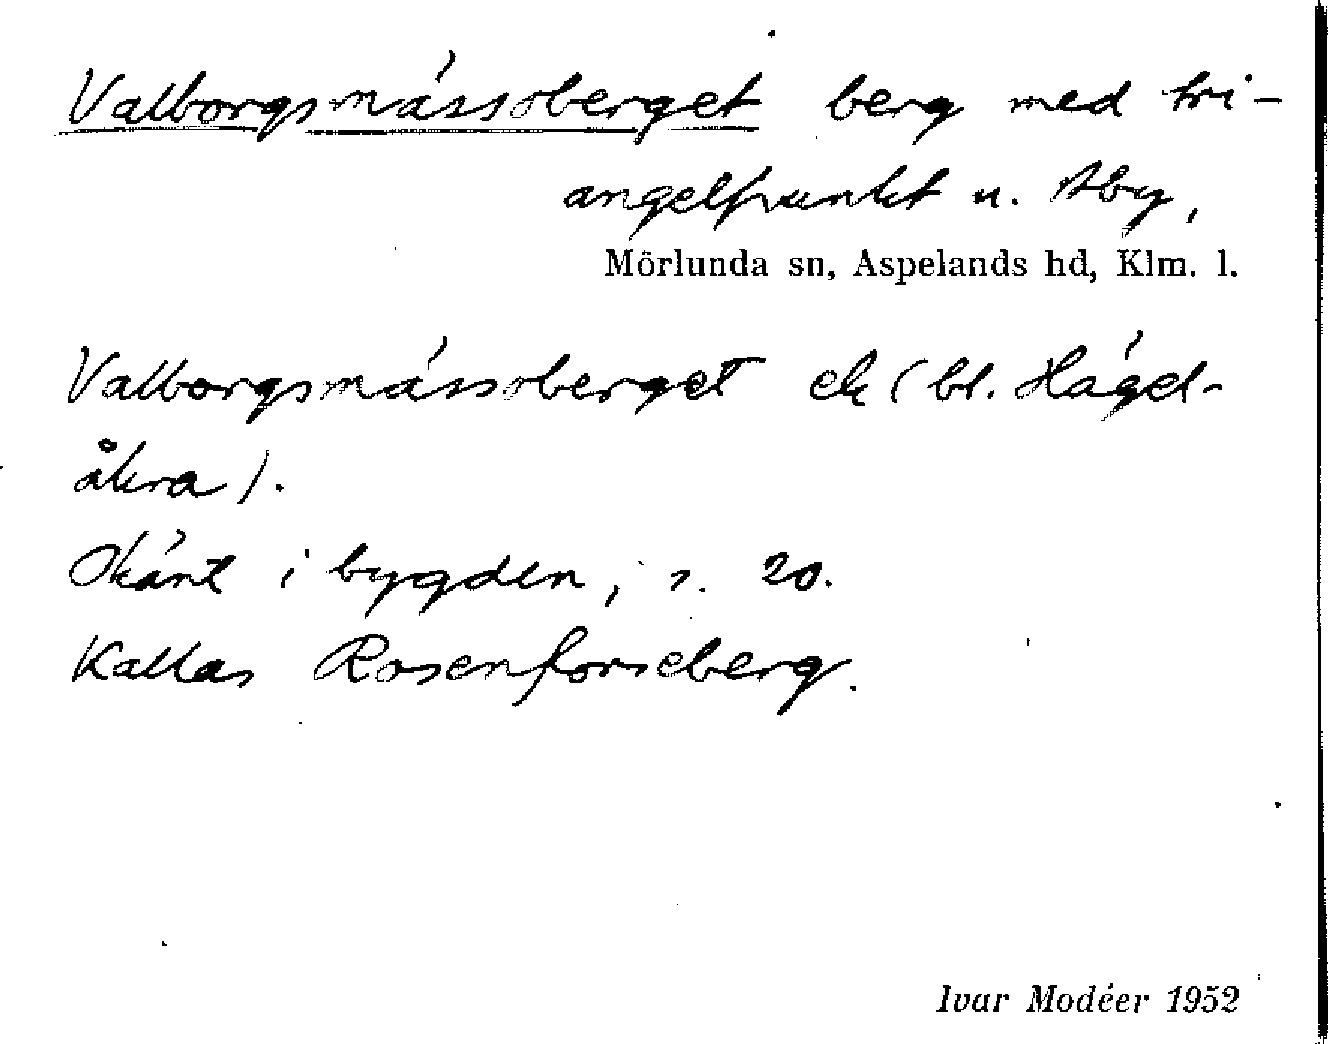 Valborgsmässoberget berg med tri-
angelpunkt u. Åby,
Mörlunda sn, Aspelands hd, Klm. l.
Valborgsmässoberget ek (bl. Hägel-
åkra).
Okänt i bygden, s. 20.
Kallas Rosenforseberg.
Ivar Modéer 1952